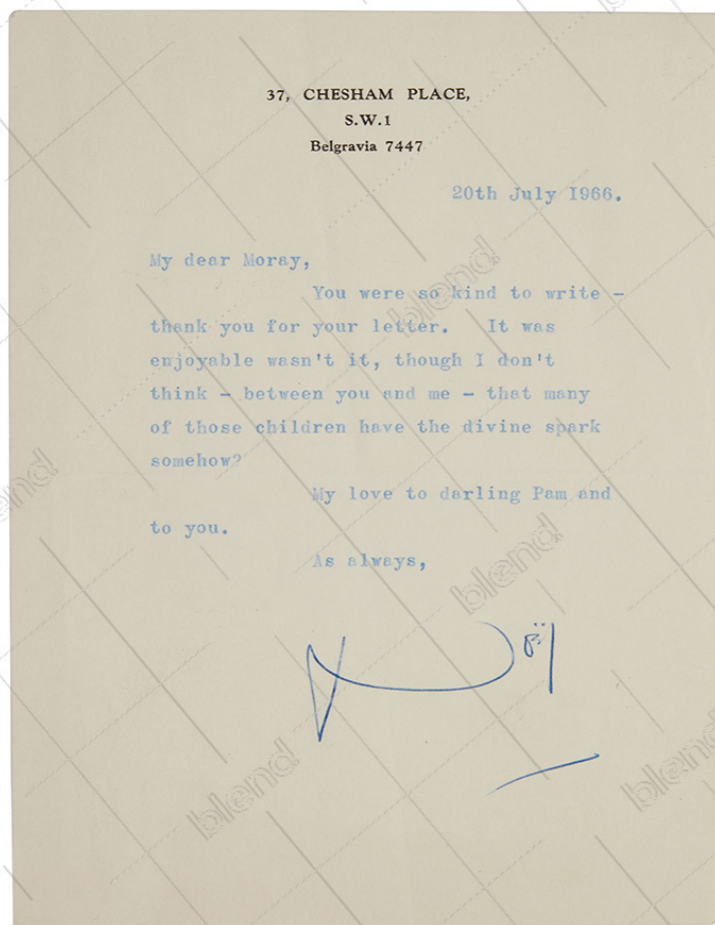 37, CHESHAM PLACE,
S.W.1
Belgravia 7447
20th July 1966.
My dear Moray,
You were so kind to write –
thank you for your letter. It was
enjoyable wasn't it, though I don't
think – between you and me – that many
of those children have the divine spark
somehow?
My love to darling Pam and
to you.
As always,
Noël
blend
blend
blend
blend
blend